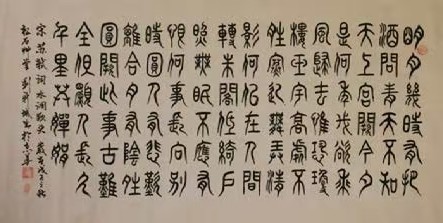 明月幾時有把
酒問青天不知
天上宮闕今夕
是何年我欲乘
風歸去惟恐瓊
樓玉宇高處不
勝寒起舞弄清
影何似在人間
轉朱閣低綺戶
照無眠不應有
恨何事長向別
時圓人有悲歡
離合月有陰晴
圓缺此事古難
全但願人長久
千里共嬋娟
宋蘇軾詞水調歌頭